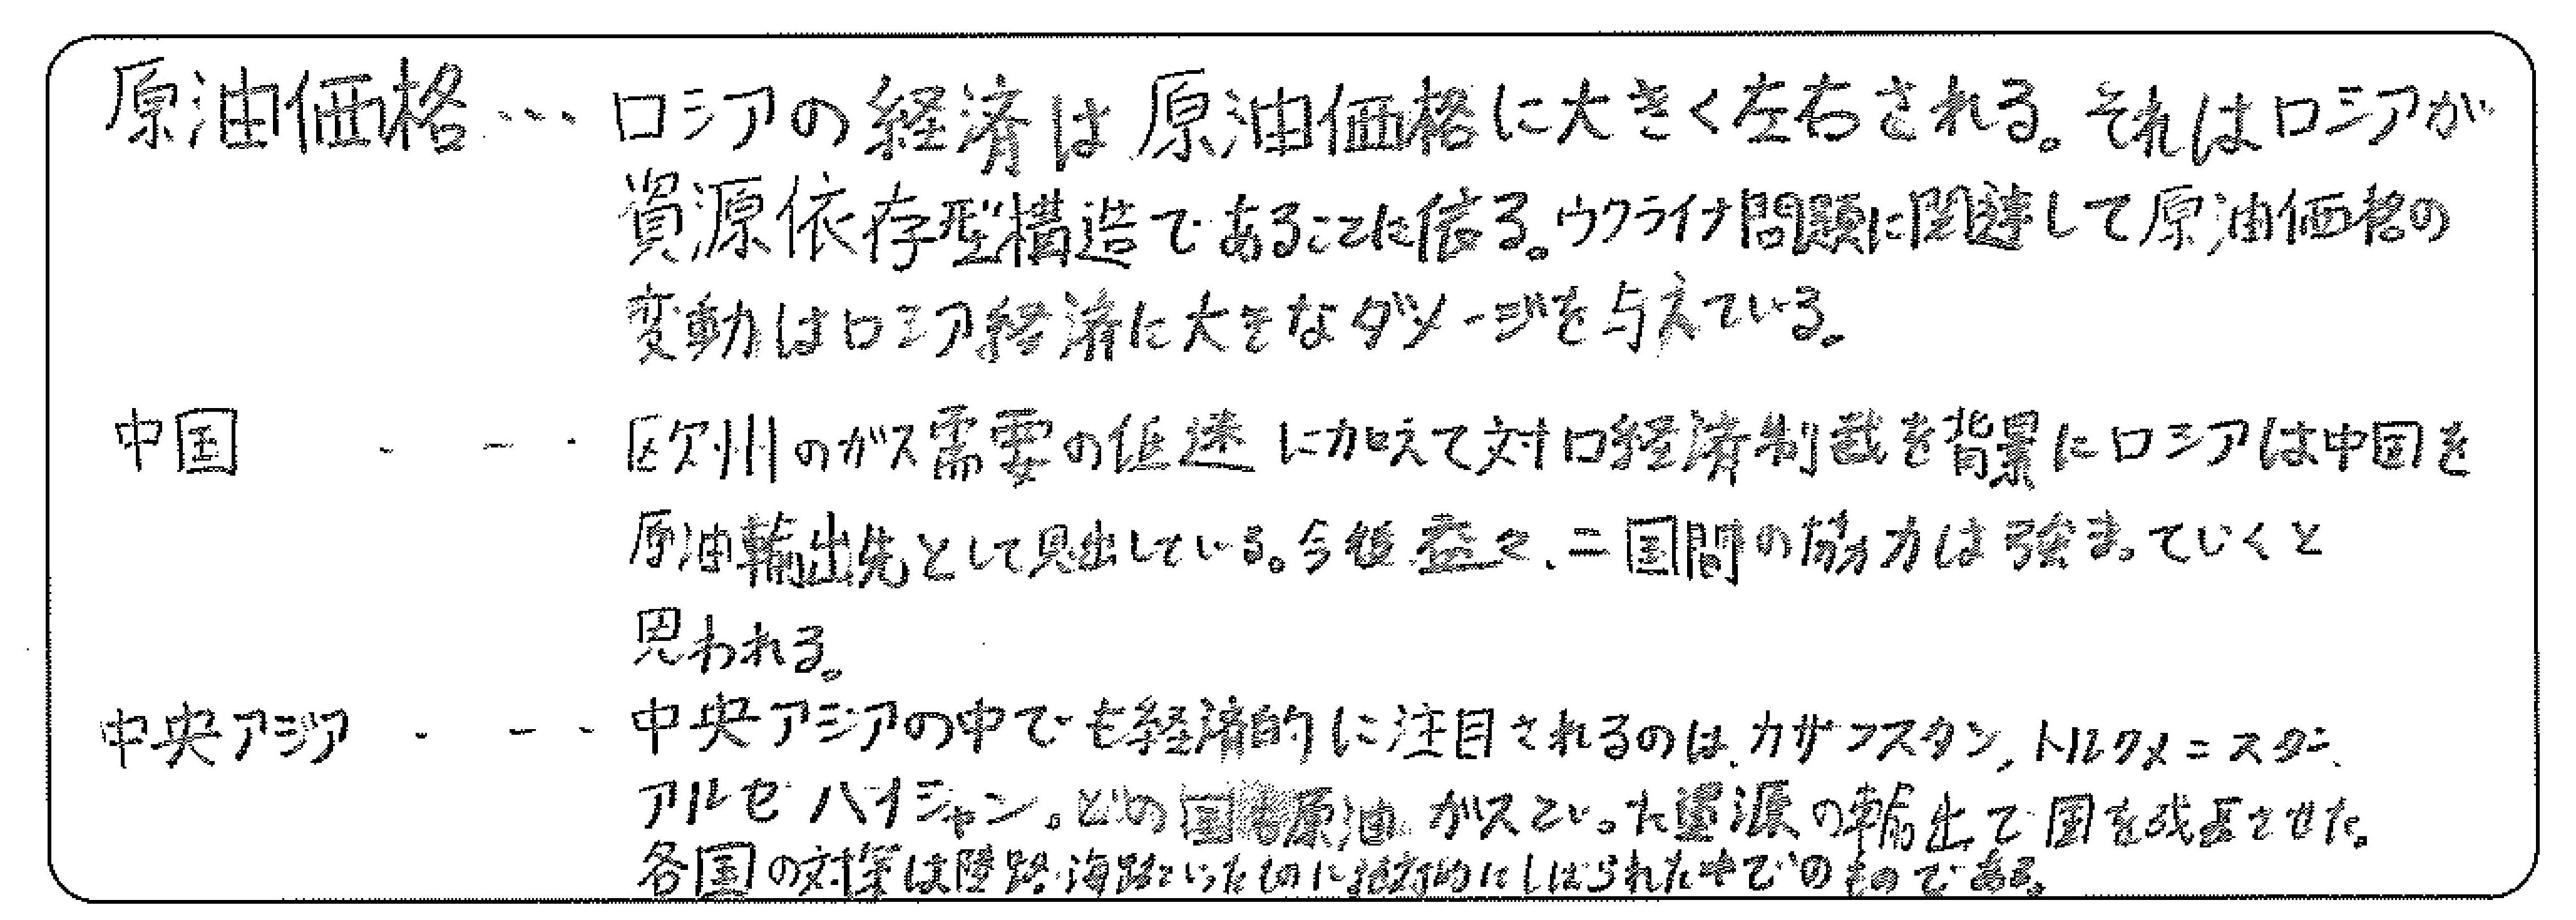 原油価格 … ロシアの経済は原油価格に大きく左右される。それはロシアが
資源依存型構造であることに依る。ウクライナ問題に関連して原油価格の
変動はロシア経済に大きなダメージを与えている。
中国 … 欧州のガス需要の低迷に加えて対ロ経済制裁を背景にロシアは中国を
原油輸出先として見出している。今後益々、二国間の協力は強まっていくと
思われる。
中央アジア … 中央アジアの中でも経済的に注目されるのは、カザフスタン、トルクメニスタン、
アルゼバイジャン。どの国も原油、ガスといった資源の輸出で国を成長させた。
各国の対策は陸路・海路といったものに しばられた中でのものである。